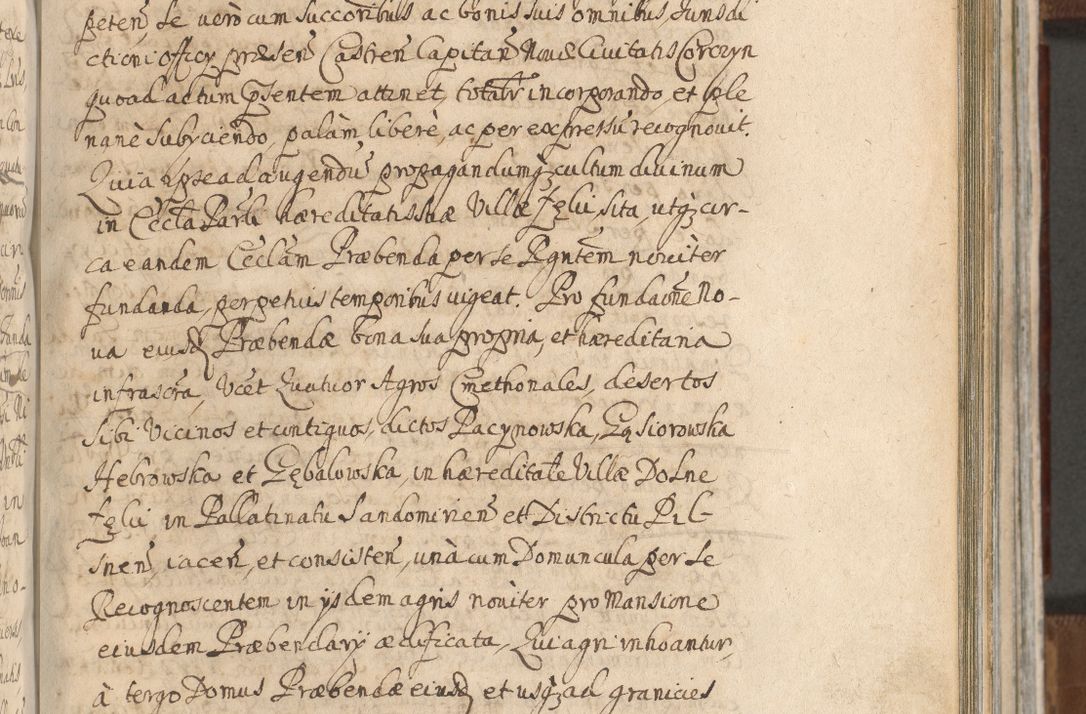 peten, se vero cum succoribus ac bonis suis omnibus, Jurisdi
ctioni officy præsen Castren Capitan Novæ Civitatis Corczyn
quoad actum psentem attinet, totalr incorporando, et ple
nanè subyciendo, palàm liberè, ac per expressu recognovit.
Quia ipse ad augendu propagandumqz cultum divinum
in Eccla Parli hæreditatis suæ Villæ sita, utqz cir-
ca eandem Ecclam Præbenda per se Rgntem noviter
fundanda, perpetuis temporibus vigeat. Pro fundaone No-
va eiusd Præbendæ bona sua propria, et hæreditaria
infrascra, Vcet Quatuor Agros Cmethonales, desertos
sibi vicinos et contiguos, dictos Pacynowska, Gąsiorowska
Hebrowska et Gębalowska, in hæreditate Villæ Dolne
in Pallatinatu Sandomirien et Districtu Pil-
snen, iacen, et consisten, unà cum Domuncula per se
Recognoscentem in ysdem agris noviter pro Mansione
eiusdem Præbendary ædificata, Qui agri inhoantur,
à tergo Domus Præbendæ eiusd et usqz ad granicies